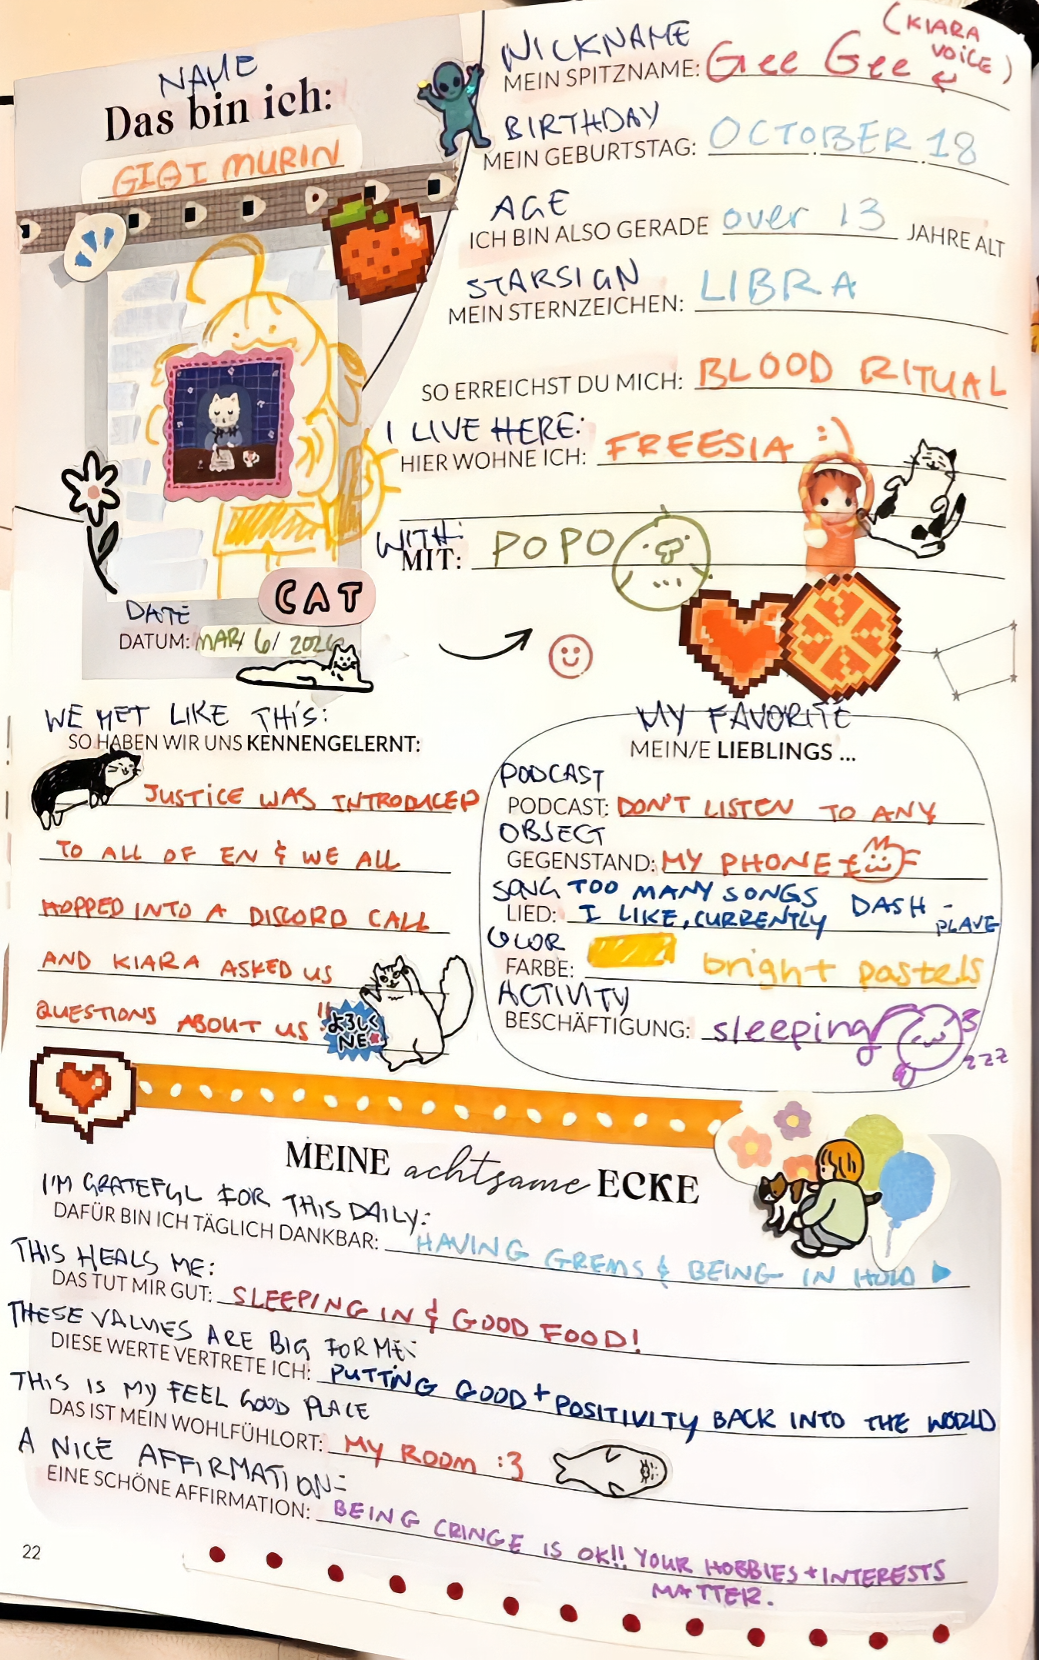 NAME
Das bin ich:
GIGI MURIN
CAT
DATE
DATUM: MAR/ 6/ 2026
NICKNAME
MEIN SPITZNAME: Gee Gee (KIARA VOICE)
BIRTHDAY
MEIN GEBURTSTAG: OCTOBER 18
AGE
ICH BIN ALSO GERADE over 13 JAHRE ALT
STARSIGN
MEIN STERNZEICHEN: LIBRA
SO ERREICHST DU MICH: BLOOD RITUAL
I LIVE HERE:
HIER WOHNE ICH: FREESIA :)
WITH:
MIT: POPO
WE MET LIKE THIS:
SO HABEN WIR UNS KENNENGELERNT:
JUSTICE WAS INTRODUCED
TO ALL OF EN & WE ALL
HOPPED INTO A DISCORD CALL
AND KIARA ASKED US
QUESTIONS ABOUT US !!
よろしく
NE
MY FAVORITE
MEIN/E LIEBLINGS ...
PODCAST
PODCAST: DON'T LISTEN TO ANY
OBJECT
GEGENSTAND: MY PHONE
SONG TOO MANY SONGS DASH -
LIED: I LIKE, CURRENTLY PLAVE
COLOR
FARBE: bright pastels
ACTIVITY
BESCHÄFTIGUNG: sleeping
zzz
MEINE achtsame ECKE
I'M GRATEFUL FOR THIS DAILY:
DAFÜR BIN ICH TÄGLICH DANKBAR: HAVING GREMS & BEING IN HOLO
THIS HEALS ME:
DAS TUT MIR GUT: SLEEPING IN & GOOD FOOD!
THESE VALUES ARE BIG FOR ME:
DIESE WERTE VERTRETE ICH: PUTTING GOOD + POSITIVITY BACK INTO THE WORLD
THIS IS MY FEEL GOOD PLACE
DAS IST MEIN WOHLFÜHLORT: MY ROOM :3
A NICE AFFIRMATION:
EINE SCHÖNE AFFIRMATION: BEING CRINGE IS OK!! YOUR HOBBIES + INTERESTS
MATTER.
22